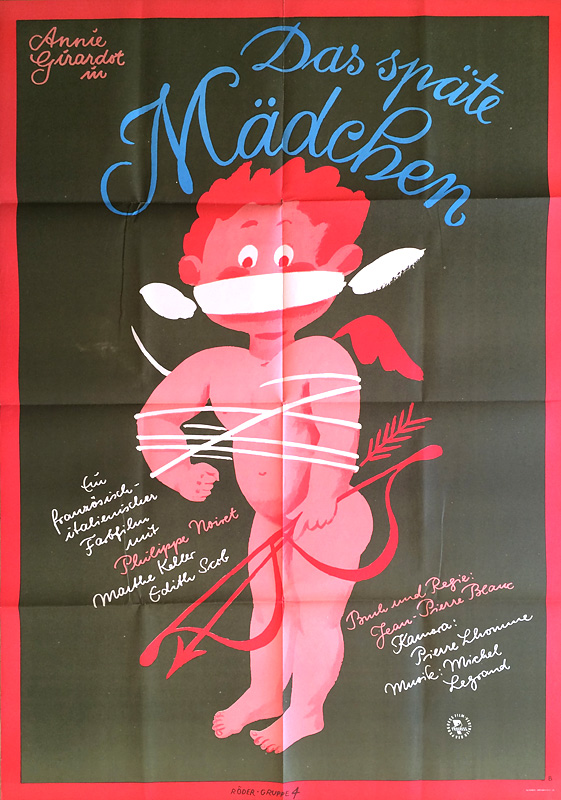 Annie
Girardot
in
Das späte
Mädchen
Ein
französisch-
italienischer
Farbfilm
mit
Philippe Noiret
Marthe Keller
Edith Scob
Buch und Regie:
Jean-Pierre Blanc
Kamera:
Pierre Lhomme
Musik: Michel
Legrand
RÖDER-GRUPPE 4